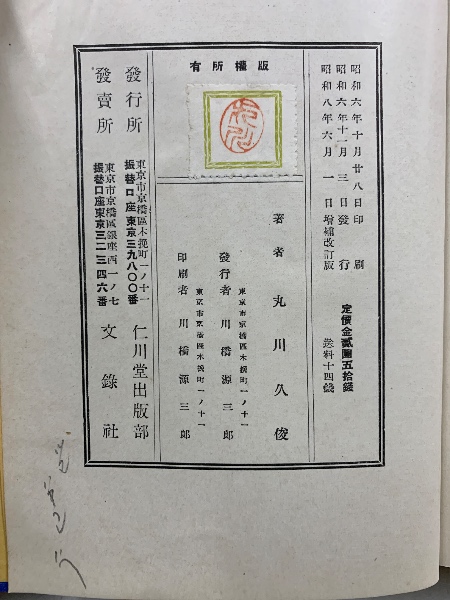 昭和六年十月廿八日印刷
昭和六年十一月三日發行
昭和八年六月一日增補改訂版
定價金貳圓五拾錢
送料十四錢
版權所有
著者 丸川久俊
東京市京橋區木挽町一ノ十一
發行者 川橋源三郎
東京市京橋區木挽町一ノ十一
印刷者 川橋源三郎
發行所
東京市京橋區木挽町一ノ十一
振替口座東京三九八〇〇番
仁川堂出版部
發賣所
東京市京橋區銀座西一ノ七
振替口座東京三二三四六番
文錄社